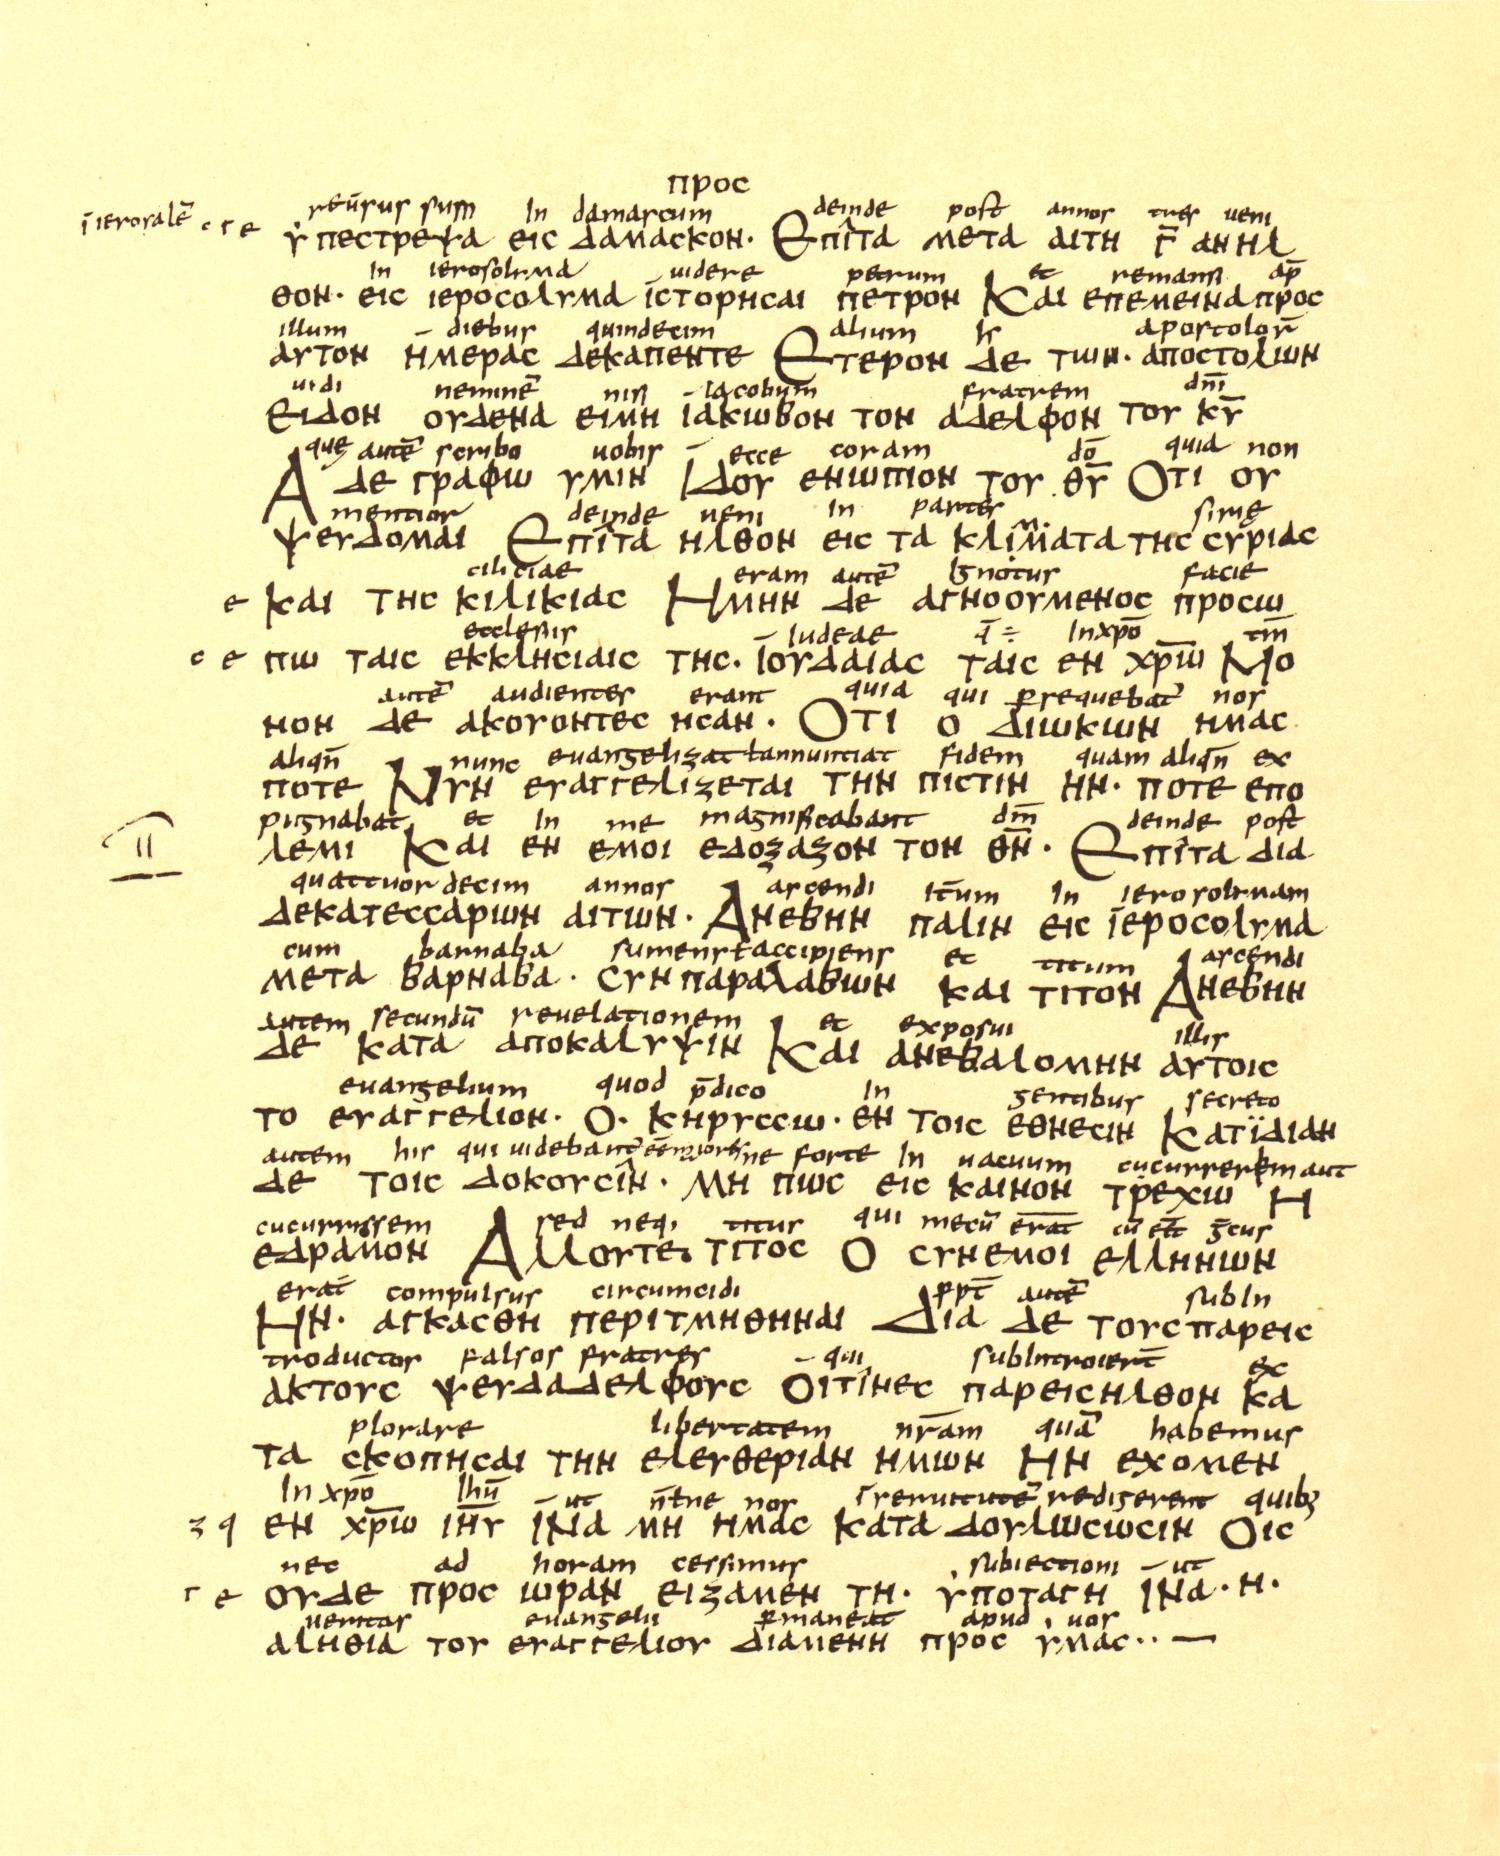 προс
reūsus sum In damascum deinde post annos tres ueni
ϋπεстρεψα ειс δαμαсκον· Επῖτα μετα αιτη Γ̄ ανηλ
In ierosolима uidere petrum et remansi ap̄
θον· ειс ιεροсολυμα ϊсτορηсαι πετρον Και επεμεινα προс
illum diebus quindecim alium apostolor̄
αυτον ημεραс δεκαπεντε Ετερον δε των· αποсτολων
uidi neminē nisi iacobum fratrem dn̄i
Ειδον ουδενα ειμη ϊακωβον τον αδελφον του κ̄υ
que autē scribo uobis ecce coram dō quia non
Α δε γραφω υμιν Ιδου ενωπιον του θ̄υ Οτι ου
mentior deinde ueni in partes sirie
ψευδομαι Επῖτα ηλθον ειс τα κλιματα τηс сυριαс
ciliciae eram autē Ignotus facie
ε Και τηс κιλικιαс Ημην δε αγνοουμενοс προсω
ecclesiis Iudeae q̄ ÷ Inxpō
с ε πω ταιс εκκληсιαιс τηс· ϊουδαιαс ταιс εν χρ̄ω Μο
autē audientes erant quia qui persequebat nos
νον δε ακουοντεс ηсαν· Οτι ο διωκων ημαс
aliqn̄ nunc euangelizat ł annuntiat fidem quam aliqn̄ ex
ποτε Νυν ευαγγελιζεται την πιсτιν ην· ποτε επο
pugnabat et In me magnificabant dm̄ deinde post
λεμι Και εν εμοι εδοξαζον τον θ̄ν· Επῖτα δια
II
quattuor decim annos ascendi itūm In ierosolimam
δεκατεссαρων αιτων· Ανεβην παλιν ειс ϊεροсολυμα
cum barnaba sumens ł accipiens et titum ascendi
μετα βαρναβα· сυνπαραλαβων και τιτον Ανεβην
autem secundū reuelationem et exposui illis
δε κατα αποκαλυψιν Και ανεβαλομην αυτοιс
euangelium quod p̄dico In gentibus secreto
το ευαγγελιον· Ο· κηρυссω· εν τοιс εθνεсιν Κατϊδιαν
autem his qui uidebant ne forte In uacuum cucurrerem aut
δε τοιс δοκουсῖν· Μη πωс ειс καινον τρεχω Η
cucurrissem sed neq, titus qui mecū erat
εδραμον Αλλουτε τιτοс Ο сυνεμοι ελληνων
erat compulsus circumcidi ppt̄ autē subIn
Ην· αγκαсθη περιτμηθηναι Δια δε τουс παρειс
troductos falsos fratres qui subIntroiert̄ ex
ακτουс ψευδαδελφουс Οιτῖνεс παρειсηλθον κα
plorare libertatem nr̄am quā habemus
τα сκοπηсαι την ελευθεριαν ημων Ην εχομεν
In xpō Ihū ut nos redigerent quib;
εν χρ̄ω ιη̄υ ϊνα μη ημαс κατα δουλωсωсιν Οιс
nec ad horam cessimus subiectioni ut
Γ ε ουδε προс ωραν ειξαμεν τη· ϋποταγη ϊνα· η·
ueritas euangelii pmaneat apud uos
αληθια του ευαγγελιου διαμενη προс ϋμαс··—